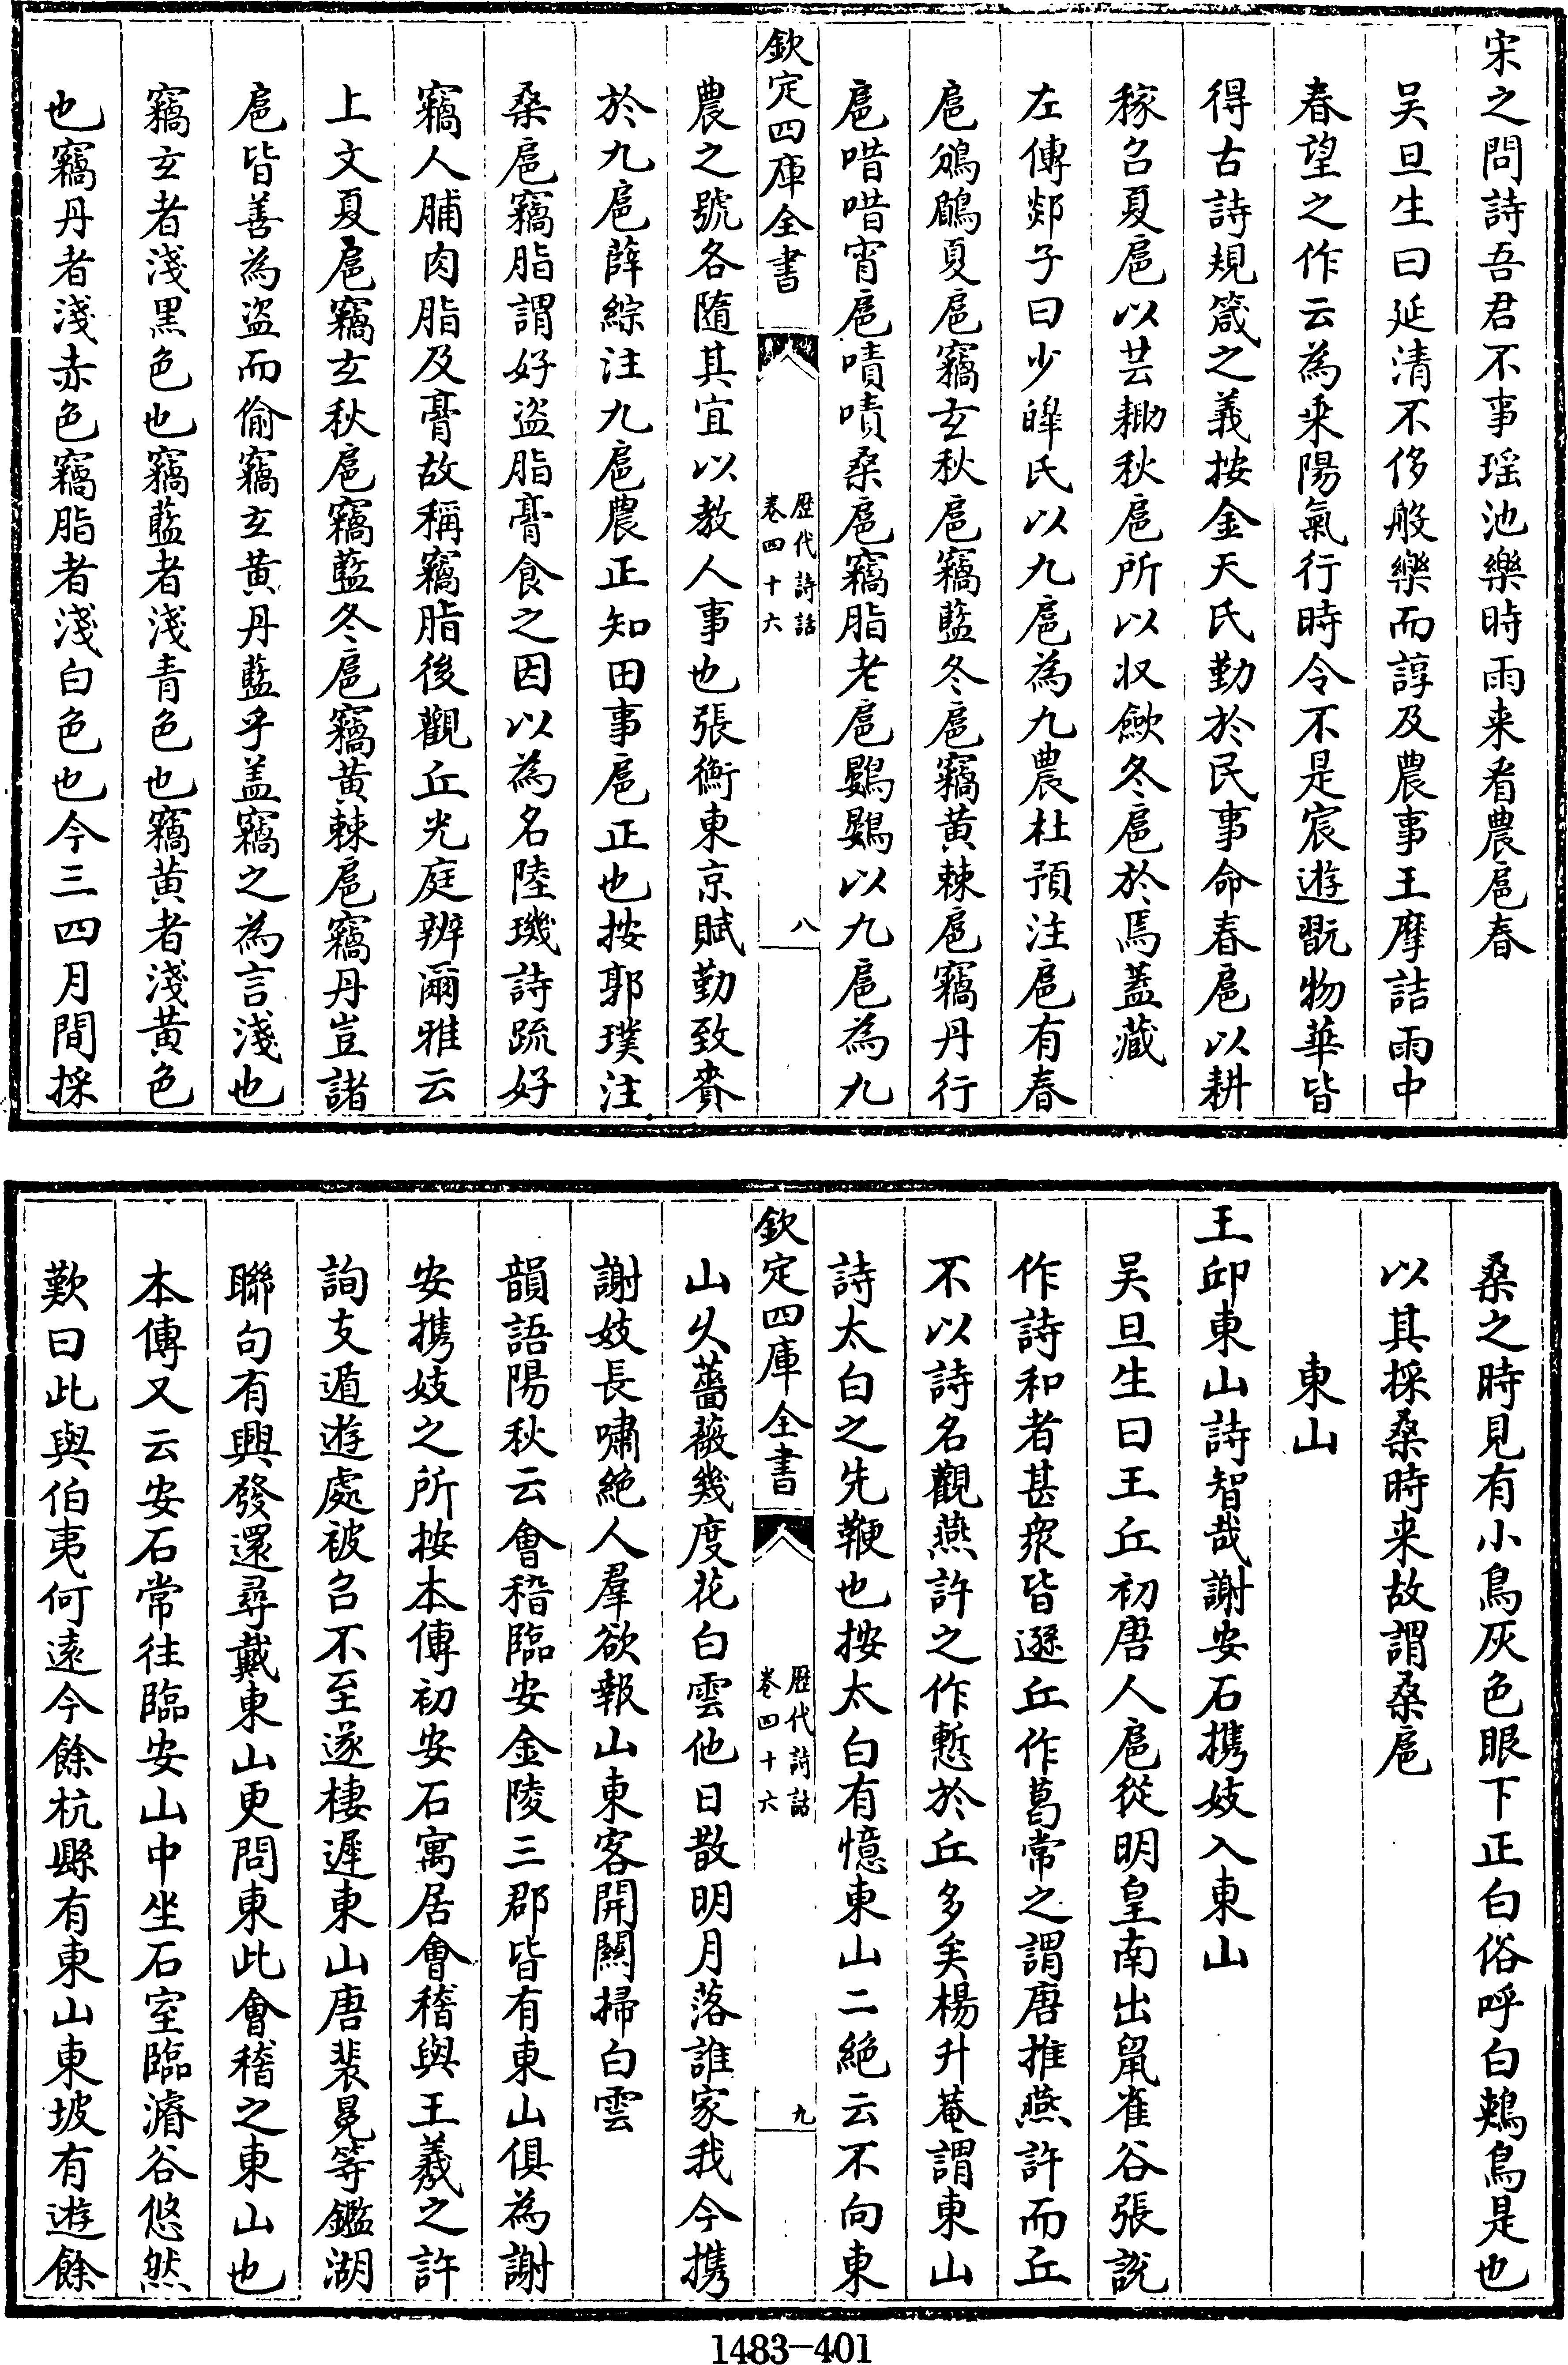 宋之問詩吾君不事瑶池樂時雨来看農扈春
吴旦生曰延清不侈般樂而諄及農事王摩詰雨中
春望之作云為乗陽氣行時令不是宸遊翫物華皆
得古詩規箴之義按金天氏勤於民事命春扈以耕
稼召夏扈以芸耡秋扈所以収斂冬扈於焉蓋藏
左傳郯子曰少皡氏以九扈為九農杜預注扈有春
扈鳻鶥夏扈竊玄秋扈竊藍冬扈竊黄棘扈竊丹行
扈唶唶宵扈嘖嘖桑扈竊脂老扈鷃鷃以九扈為九
欽定四庫全書
歴代詩話
卷四十六
八
農之號各隨其宜以教人事也張衡東京賦勤致賚
於九扈薛綜注九扈農正知田事扈正也按郭璞注
桑扈竊脂謂好盜脂膏食之因以為名陸璣詩疏好
竊人脯肉脂及膏故稱竊脂後觀丘光庭辨爾雅云
上文夏扈竊玄秋扈竊藍冬扈竊黄棘扈竊丹豈諸
扈皆善為盜而偷竊玄黄丹藍乎盖竊之為言淺也
竊玄者淺黒色也竊藍者淺青色也竊黄者淺黄色
也竊丹者淺赤色竊脂者淺白色也今三四月間採
桑之時見有小鳥灰色眼下正白俗呼白鵊鳥是也
以其採桑時来故謂桑扈
東山
王邱東山詩智哉謝安石携妓入東山
吴旦生曰王丘初唐人扈從明皇南出䑕雀谷張説
作詩和者甚衆皆遜丘作葛常之謂唐推燕許而丘
不以詩名觀燕許之作慙於丘多矣楊升菴謂東山
詩太白之先鞭也按太白有憶東山二絶云不向東
欽定四庫全書
歴代詩話
卷四十六
九
山乆薔薇幾度花白雲他日散明月落誰家我今携
謝妓長嘯絶人羣欲報山東客開闗掃白雲
韻語陽秋云會稽臨安金陵三郡皆有東山俱為謝
安携妓之所按本傳初安石寓居會稽與王羲之許
詢支遁遊處被召不至遂棲遲東山唐裴冕等鑑湖
聯句有興發還尋戴東山更問東此會稽之東山也
本傳又云安石常往臨安山中坐石室臨濬谷悠然
歎曰此與伯夷何逺今餘杭縣有東山東坡有遊餘
1483-401